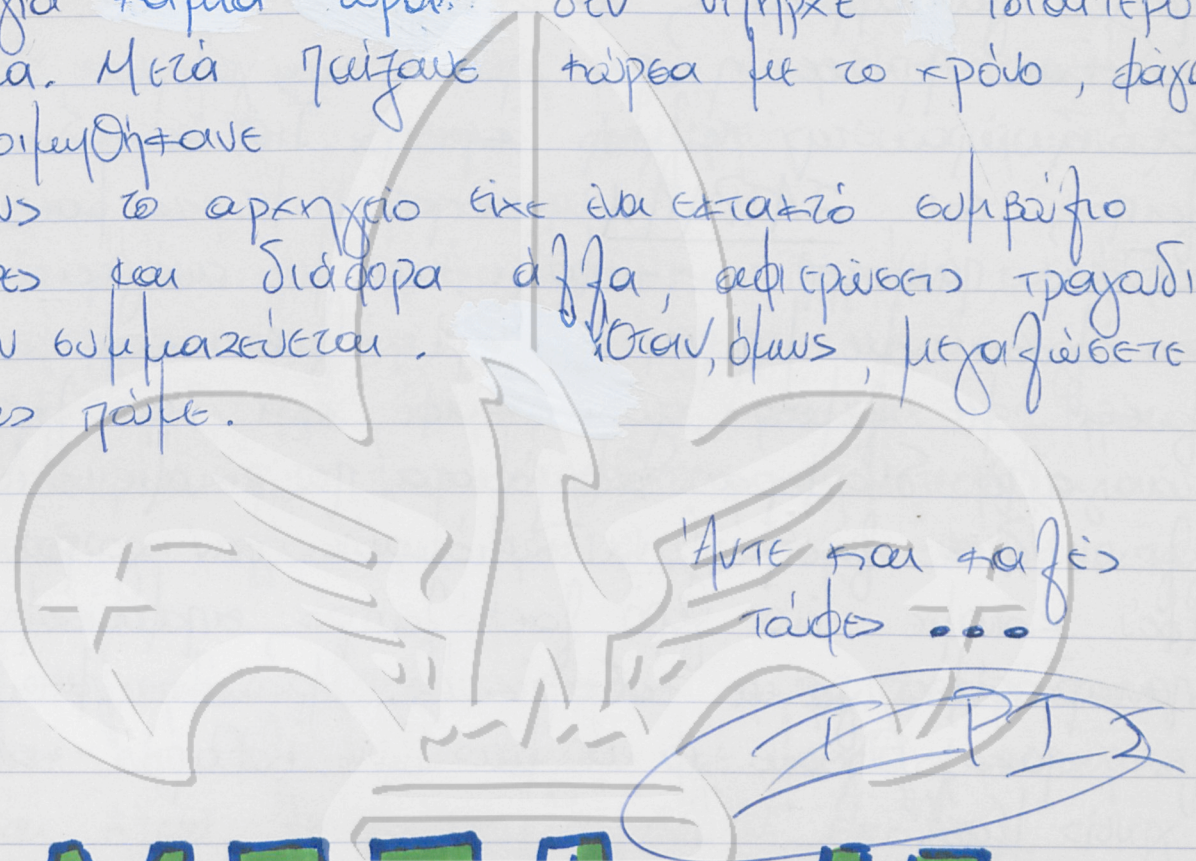 για καμιά ώρα. δεν υπήρχε ιδιαίτερο
α. Μετά παίξανε κώρσα με το χρόνο, φάγα
οιμηθήκανε
υς το αρχηγείο είχε ένα εκτακτό συμβούλιο
ες και διάφορα άλλα, αφιερώσεις τραγουδι
υ συμμαζεύεται. Όταν, όμως, μεγαλώσετε
ες πούμε.
Άντε και καλές
τάφες ...